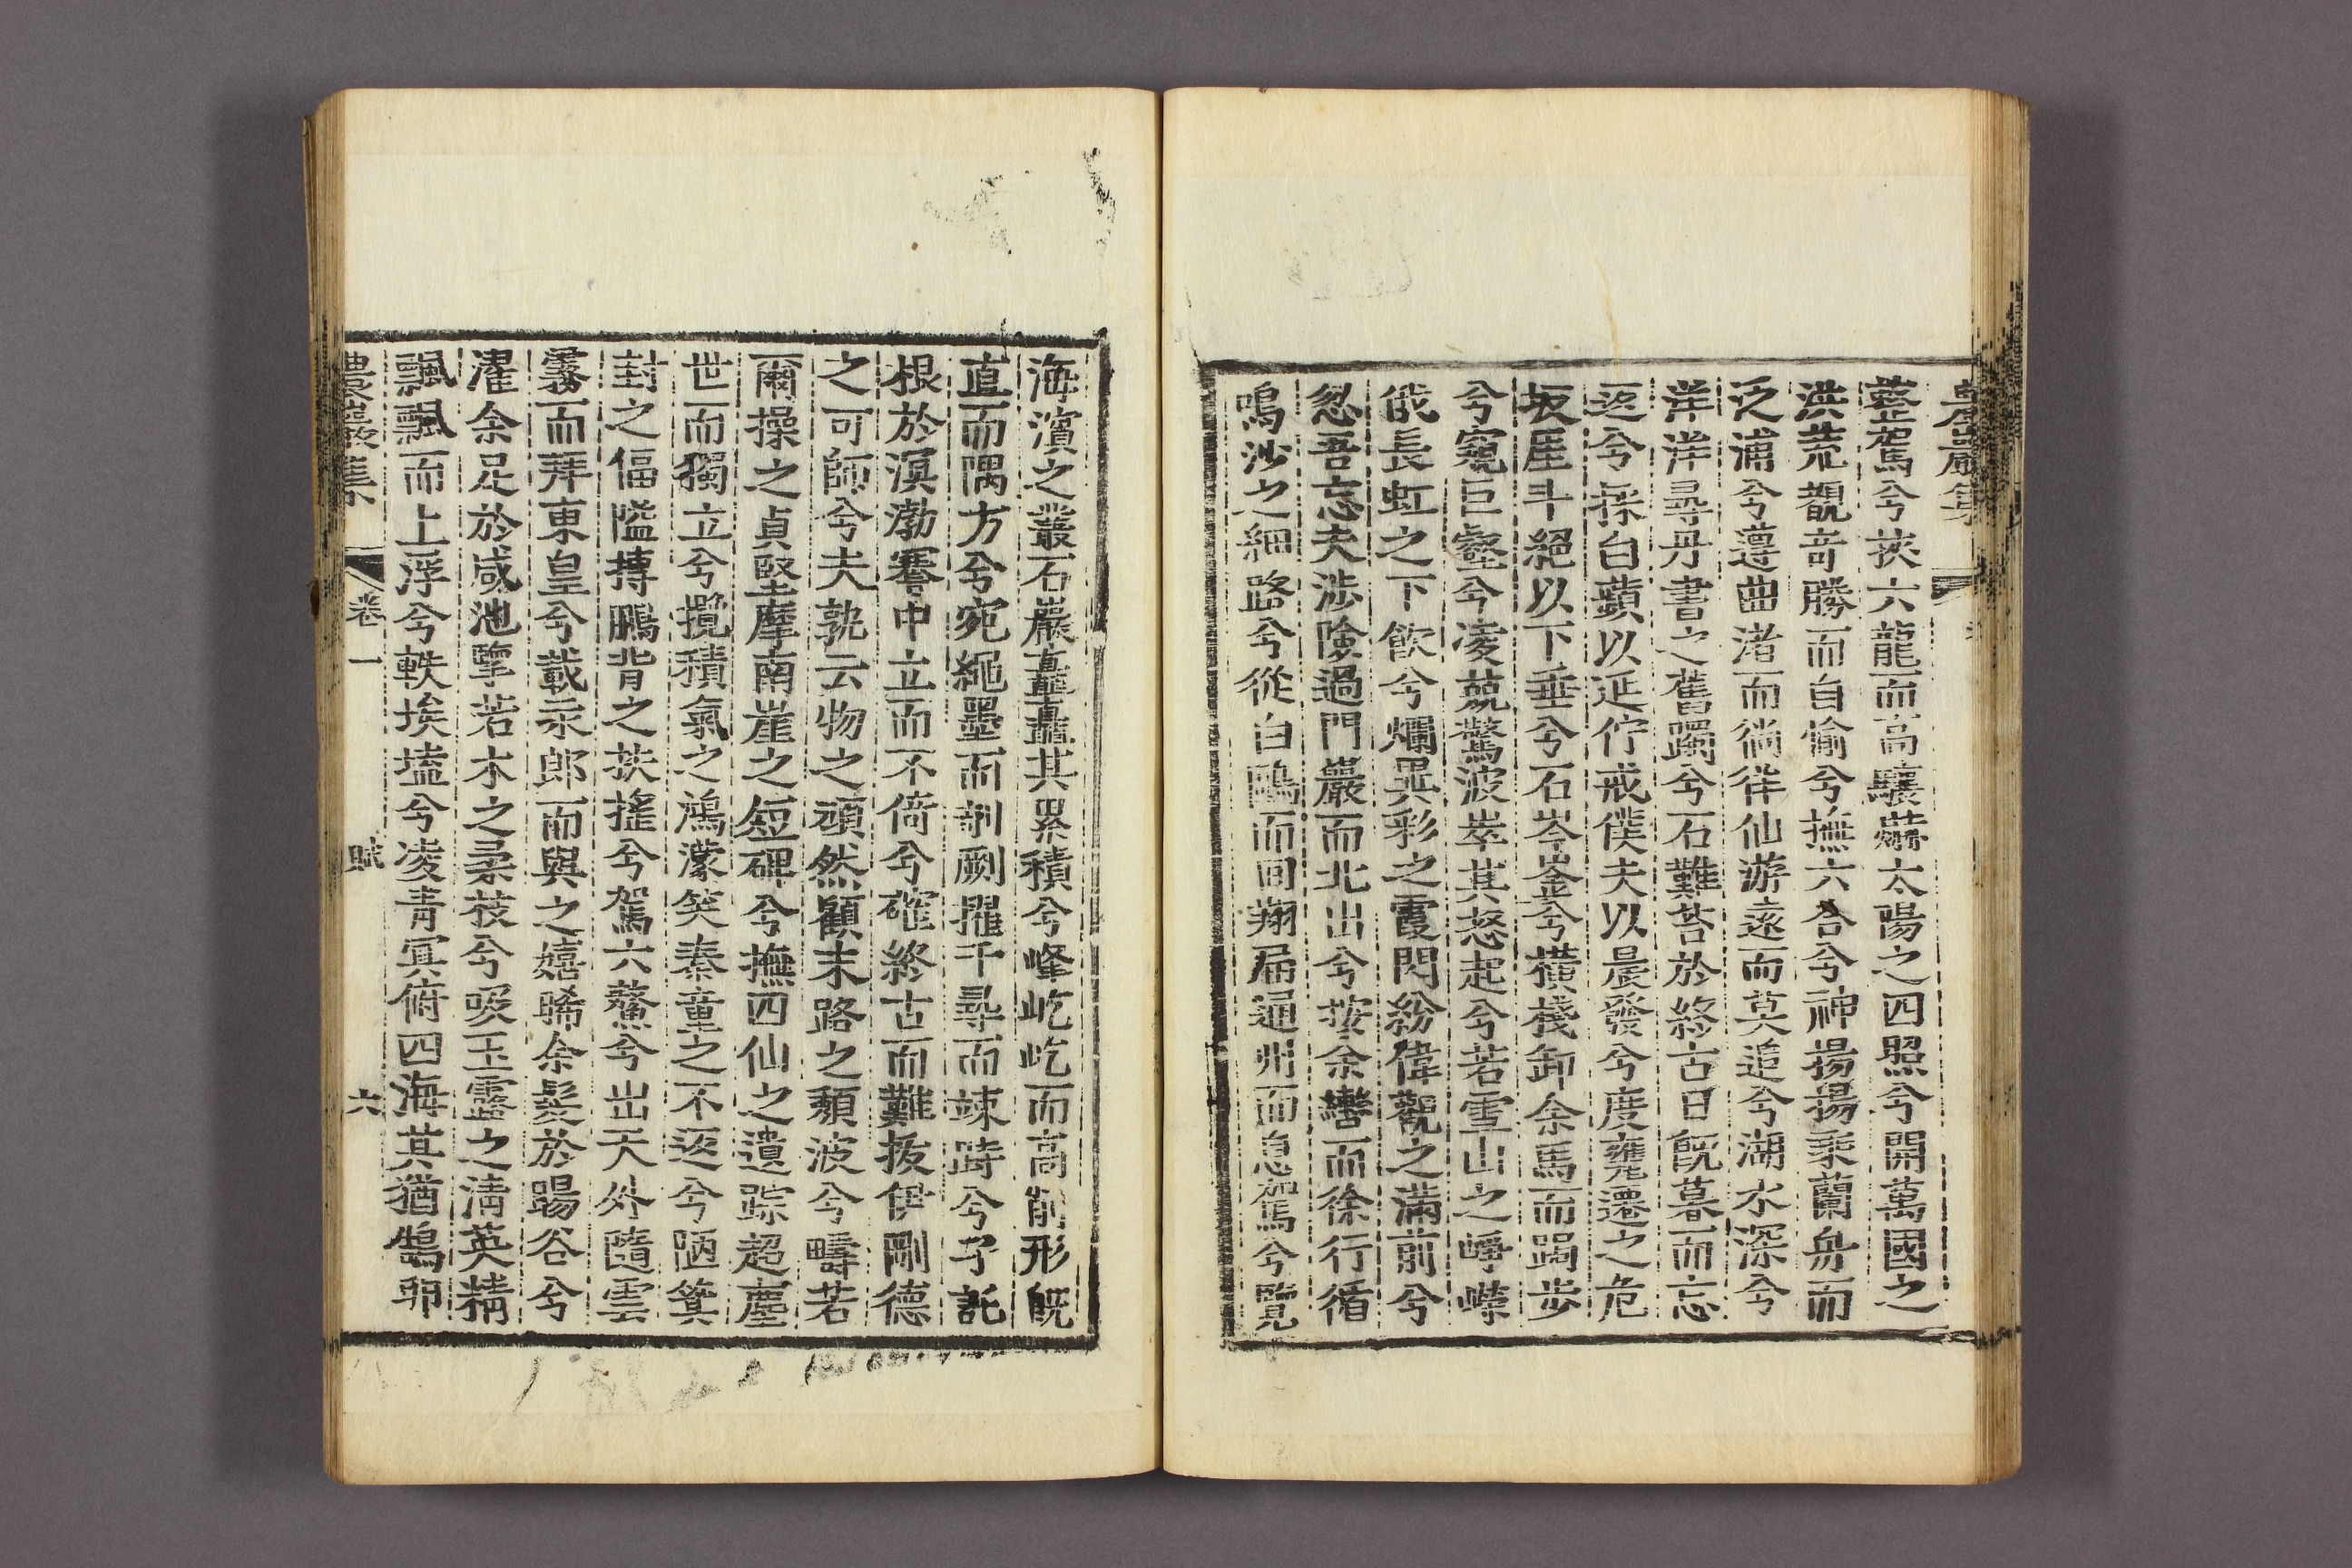 農巖集
整駕兮挾六龍而高驤䕺太陽之四照兮開萬國之
洪荒覩奇勝而自愉兮撫六合兮神揚揚乘蘭舟而
泛浦兮遵曲渚而徜徉仙游遠而莫追兮湖水深兮
洋洋尋丹書之舊躅兮石難苔於終古日旣暮而忘
返兮採白蘋以延佇戒僕夫以晨發兮度甕遷之危
坂厓斗絕以下垂兮石岑崟兮橫棧卸余馬而跼步
兮窺巨壑兮凌兢驚波崒其怒起兮若雪山之崢嶸
俄長虹之下飮兮爛異彩之霞閃紛偉觀之滿前兮
忽吾忘夫涉險過門巖而北出兮按余轡而徐行循
鳴沙之細路兮從白鷗而回翔屆通州而息駕兮覽
海濱之叢石巖矗矗其累積兮峰屹屹而高削形旣
直而隅方兮宛繩墨而剞劂擢千尋而竦跱兮孑託
根於溟渤謇中立而不倚兮確終古而難拔伊剛德
之可師兮夫孰云物之頑然顧末路之頹波兮疇若
爾操之貞堅摩南崖之短碑兮撫四仙之遺踪超塵
世而獨立兮攬積氣之鴻濛笑秦童之不返兮陋箕
封之偪隘搏鵬背之扶搖兮駕六鰲兮出天外隨雲
霧而拜東皇兮載汞郎而與之嬉晞余髮於暘谷兮
濯余足於咸池擥若木之柔枝兮吸玉露之淸英精
飄飄而上浮兮軼埃壒兮凌靑冥俯四海其猶鵠卵
農巖集 卷一 賦 六